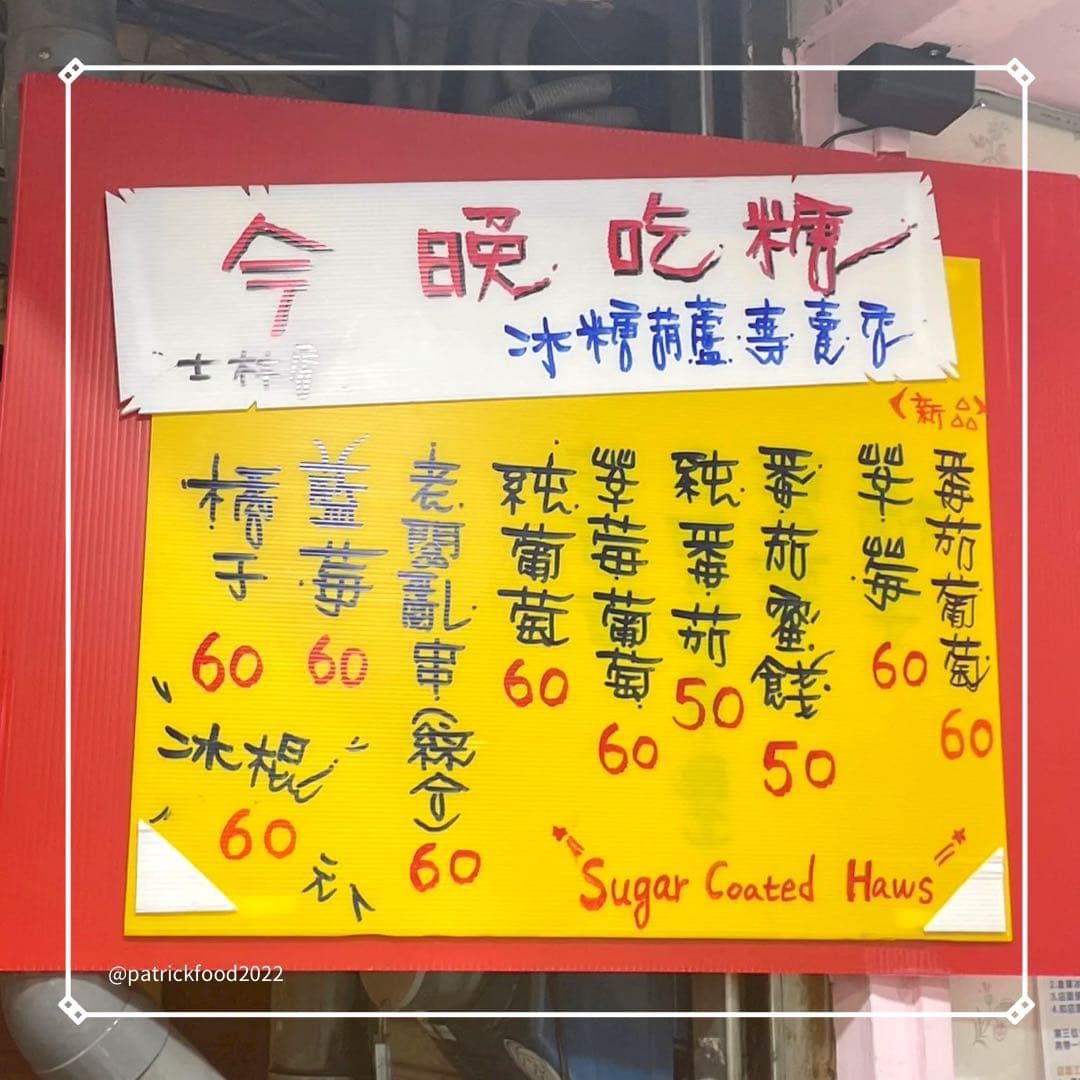 今晚吃糖
冰糖葫蘆專賣店
士林
<新品>
番茄葡萄 60
草莓 60
番茄蜜餞 50
純番茄 50
草莓葡萄 60
純葡萄 60
老闆亂串(綜合) 60
藍莓 60
橘子 60
冰棍 60
元
Sugar Coated Haws
@patrickfood2022